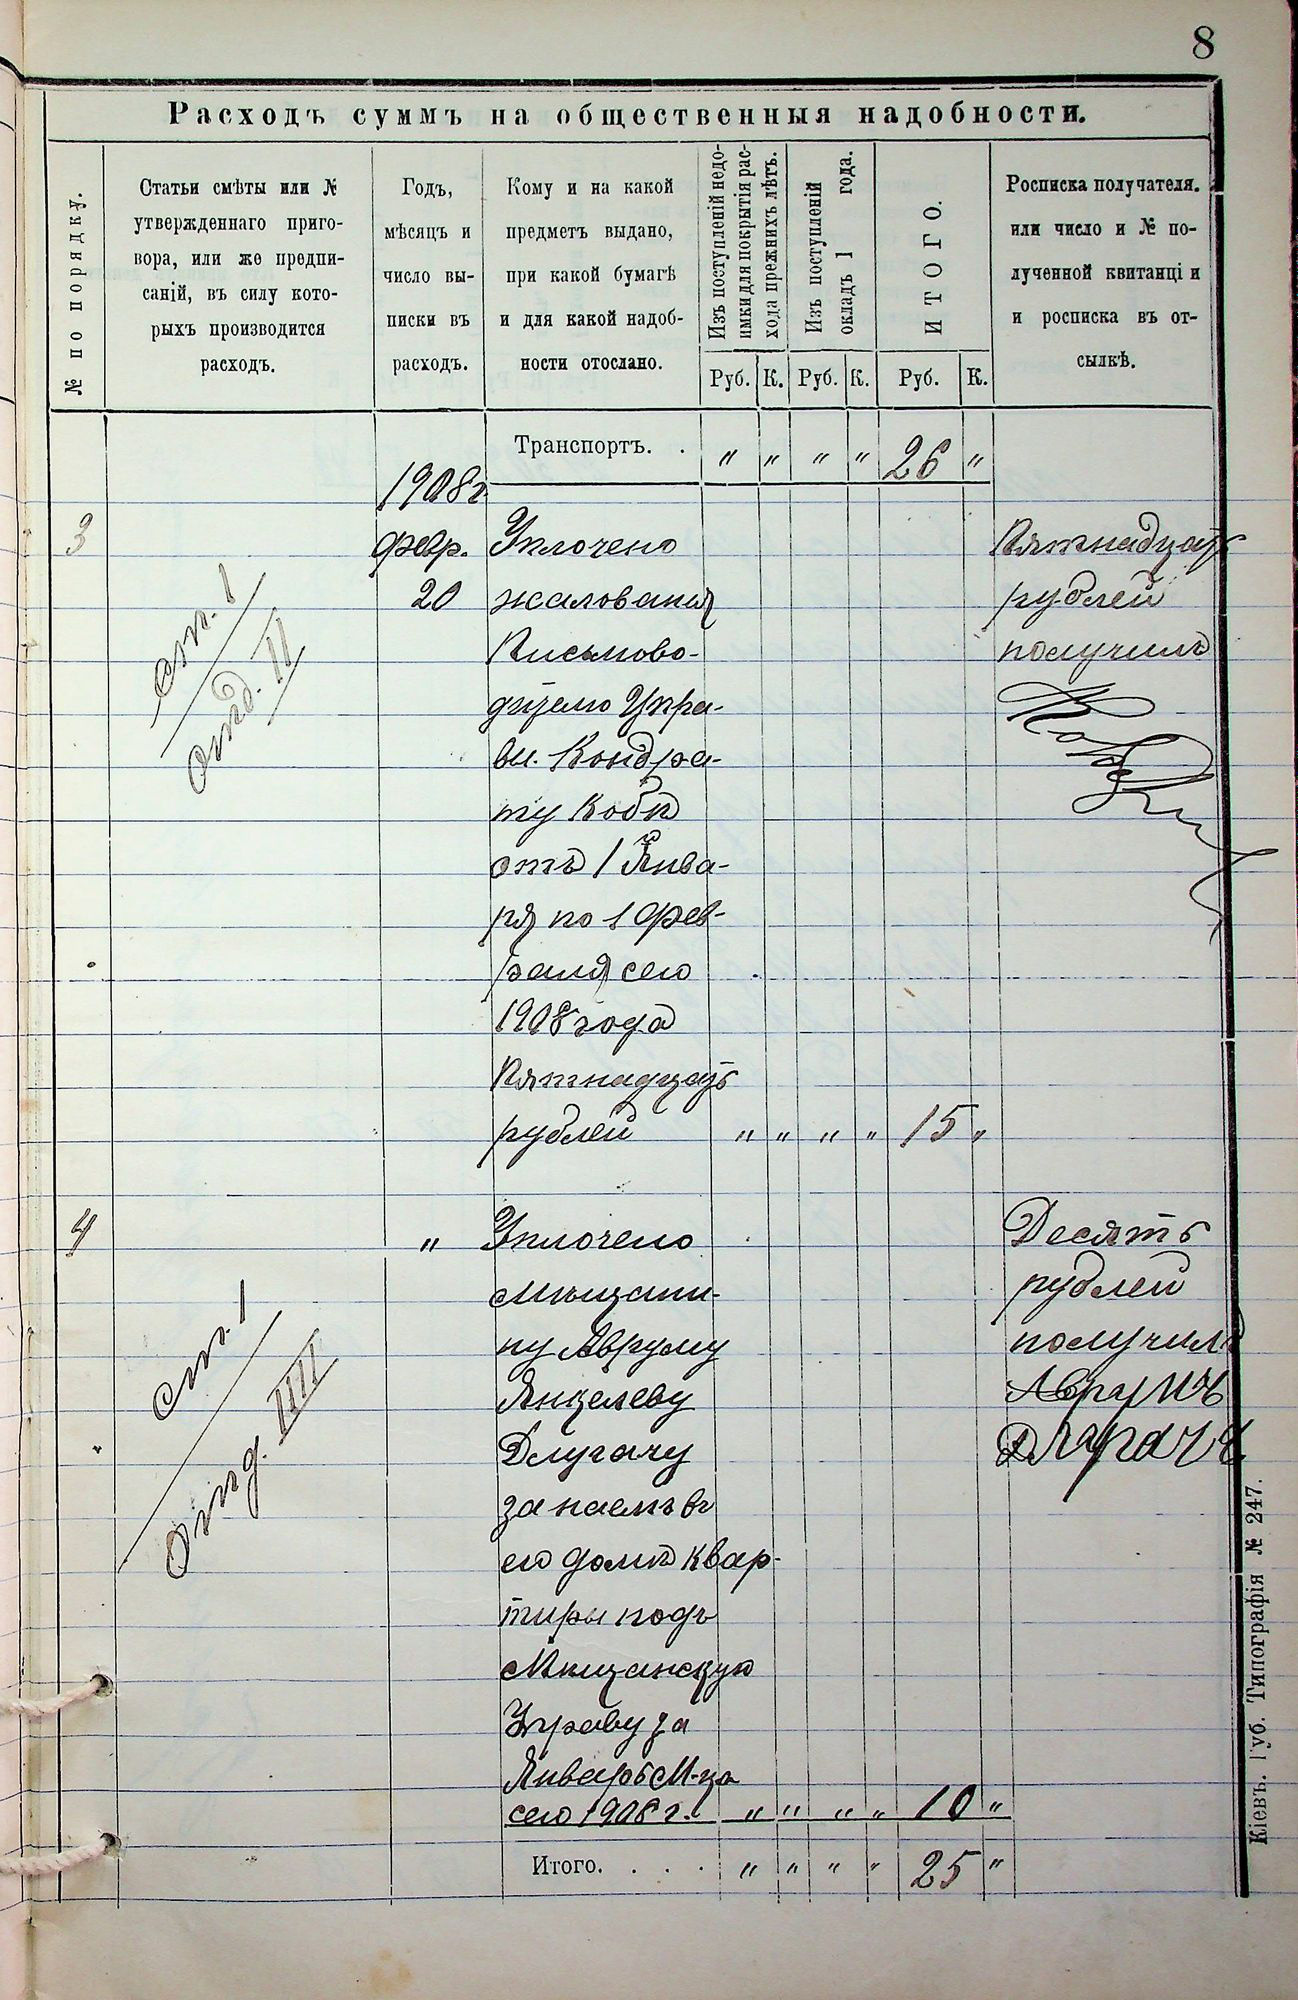 8
Расходъ суммъ на общественныя надобности.
№ по порядку.
Статьи смѣты или №
утвержденнаго приго-
вора, или же предпи-
саній, въ силу кото-
рыхъ производится
расходъ.
Годъ,
мѣсяцъ и
число вы-
писки въ
расходъ.
Кому и на какой
предметъ выдано,
при какой бумагѣ
и для какой надоб-
ности отослано.
Изъ поступленій недо-
имки для покрытія рас-
хода прежнихъ лѣтъ.
Изъ поступленій
окладъ 1 года.
ИТОГО.
Росписка получателя.
или число и № по-
лученной квитанці и
и росписка въ от-
сылкѣ.
Руб. К. Руб. К. Руб. К.
Транспортъ. . " " " " 26 "
1908 г.
3
февр.
20
ст. 1
отд. II
Уплочено
жалованія
Письмово-
дителю Упра-
вы. Кондра-
ту Кобы
отъ 1 Янва-
ря по 1 фев-
раля сего
1908 года
Пятнадцать
рублей " " " " 15 "
Пятнадцать
рублей
получилъ
4
"
ст. 1
отд. IIII
Уплочено
Мѣщани-
ну Авруму
Янкелеву
Длугачу
за наемъ въ
его домѣ квар-
тиры подъ
Мѣщанскую
Управу за
Январь М-ца
сего 1908 г. " " " " 10 "
Десять
рублей
получилъ
Аврумъ
Длугачъ
Итого. . . . " " " " 25 "
Кіевъ. Губ. Типографія № 247.